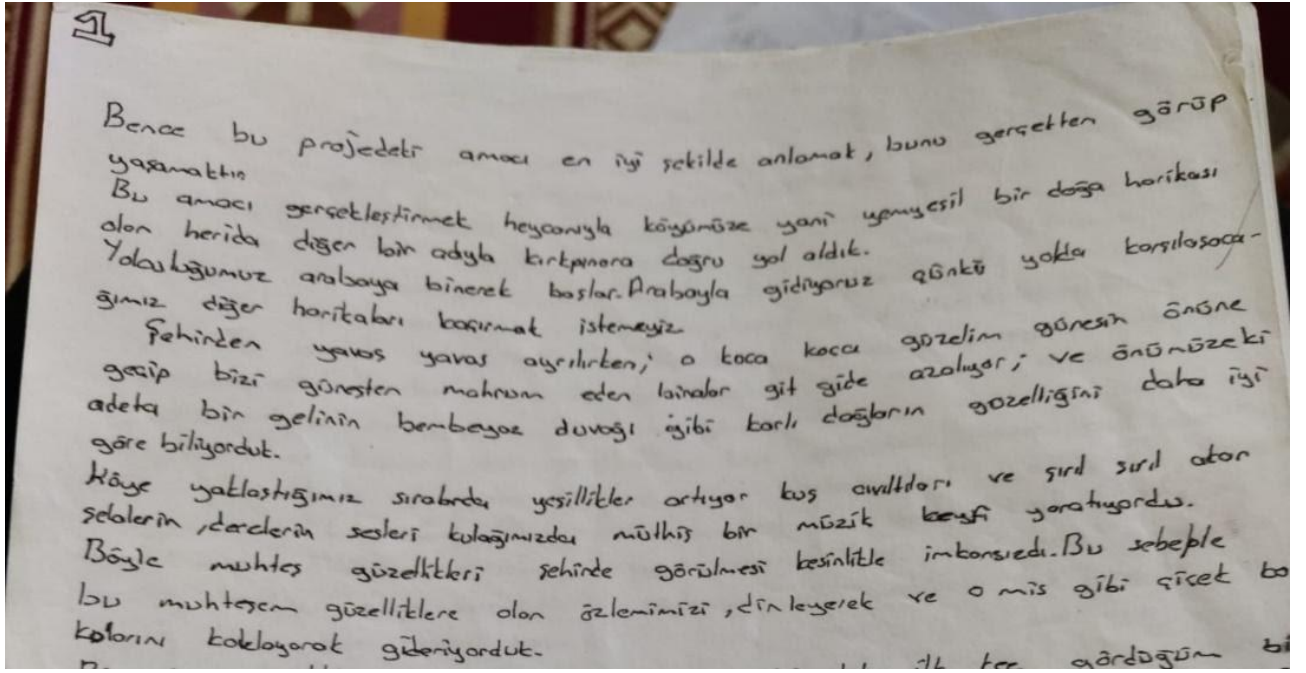 1
Bence bu projedeki amacı en iyi şekilde anlamak, bunu gerçekten görüp
yaşamaktın
Bu amacı gerçekleştirmek heycanıyla köyümüze yani yemyeşil bir doğa harikası
olan herida diğer bir adıyla kırkpınara doğru yol aldık.
Yolculuğumuz arabaya binerek başlar. Arabayla gidiyoruz çünkü yolda karşılaşaca-
ğımız diğer harikaları kaçırmak istemeyiz
Şehirden yavaş yavaş ayrılırken; o koca koca güzelim güneşin önüne
geçip bizi güneşten mahrum eden binalar git gide azalıyor; ve önümüzeki
adeta bir gelinin bembeyaz duvağı gibi karlı dağların güzelliğini daha iyi
göre biliyorduk.
Köye yaklaştığımız sıralarda yeşillikler artıyor kuş cıvıltıları ve şırıl şırıl akan
şelalerin, derelerin sesleri kulağımızda müthiş bir müzik keyfi yaratıyordu.
Böyle muhteş güzellikleri şehirde görülmesi kesinlikle imkansızdı. Bu sebeple
bu muhteşem güzelliklere olan özlemimizi, dinleyerek ve o mis gibi çiçek ko
kularını koklayarak gideriyorduk.
ilk kez gördüğüm bi